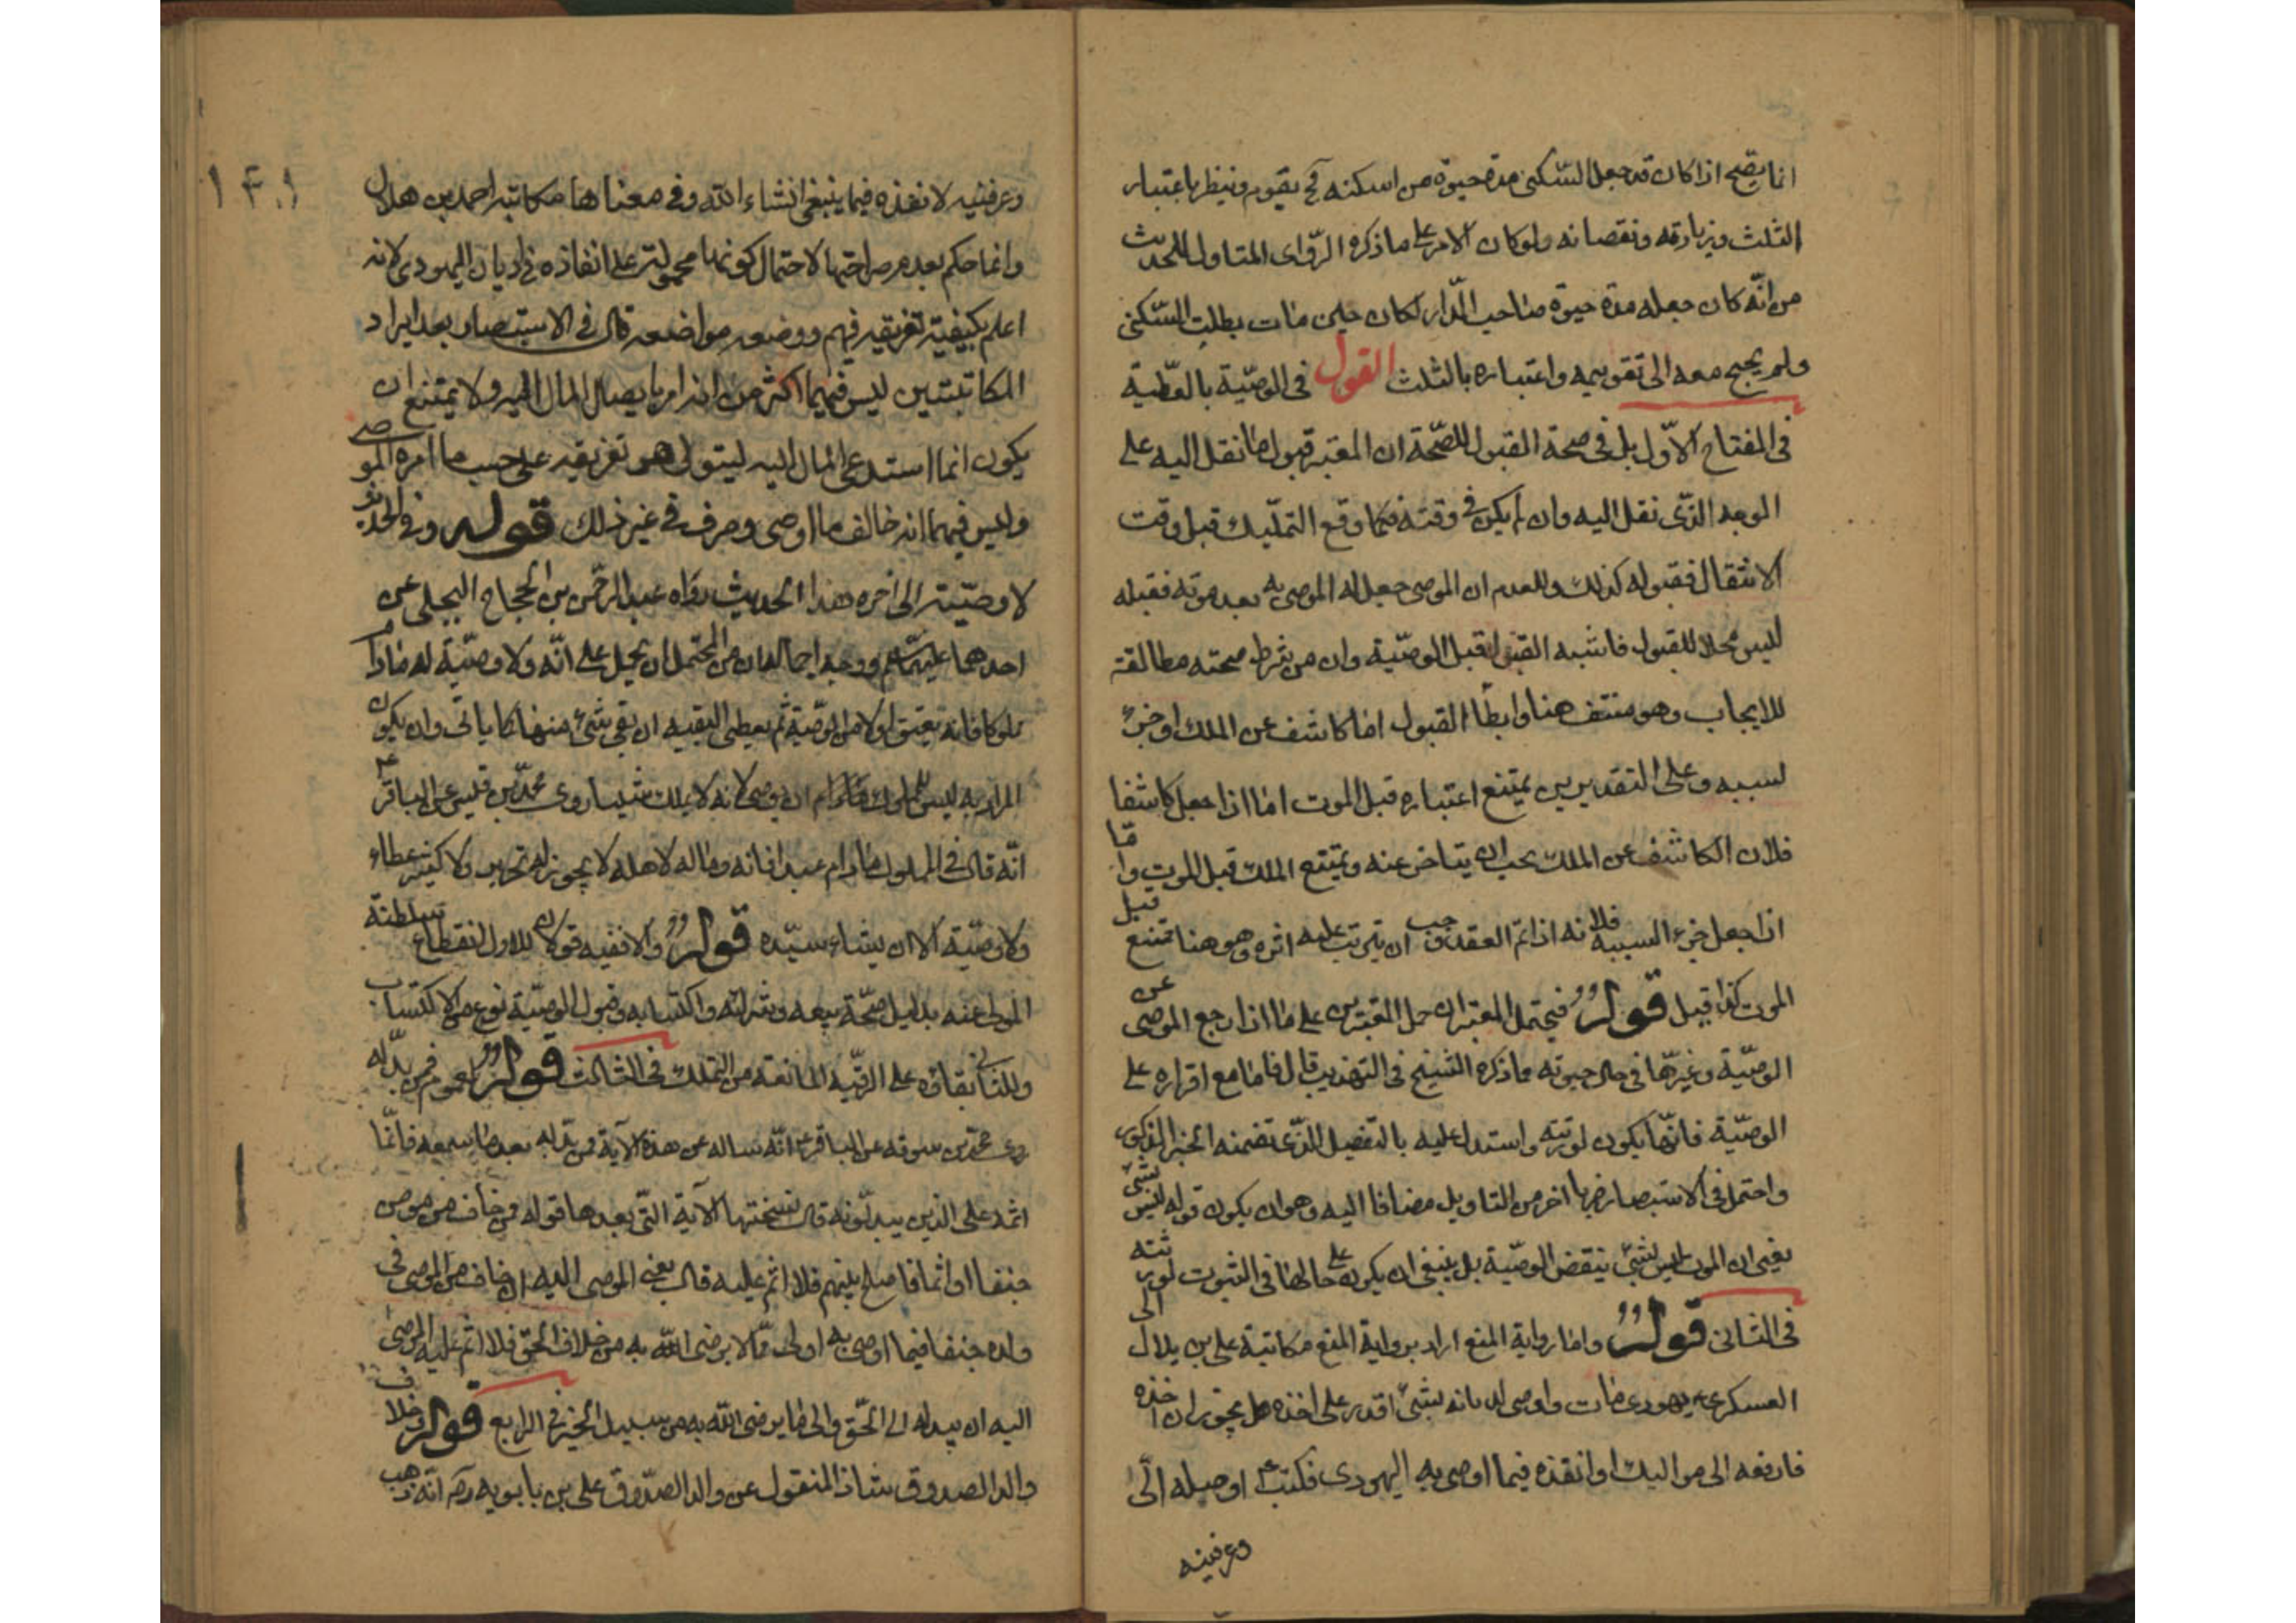 انما يتضح اذا كان قد جعل السّكنى مدة حيوة من اسكنه فح يقوم وينظر باعتبار
الثلث وزيادته ونقصانه ولو كان الامر على ما ذكره الرّاوى المتاول للحديث
من انّه كان جعله مدة حيوة صاحب الدّار لكان حين مات بطلت السّكنى
ولم يحتج معه الى تقويمه واعتباره بالثلث القول فى الوصيّة بالعطّية
فى المفتاح الاوّل بل فى صحة القبول للصّحة ان المعتبر قبول ما نقل اليه على
الوجه الذّى نقل اليه وان لم يكن فى وقته فكما وقع التمليك قبل وقت
الانتقال فقبوله كذلك وللعدم ان الموصى جعل له الموصى به بعد موته فقبله
ليس محلا للقبول فاشبه القبول قبل الوصيّة وان من شرط صحته مطابقته
للايجاب وهو منتف هنا وايضًا القبول اما كاشف عن الملك او جزء
لسببه وعلى التقديرين يمتنع اعتباره قبل الموت اما اذا جعل كاشفا
فلان الكاشف عن الملك يجب ان يتاخر عنه ويمتنع الملك قبل الموت واما
اذا جعل جزء السبب فلانه اذا تم العقد وجب ان يترتب عليه اثره وهو هنا ممتنع قبل
الموت كذا قيل قوله فيحتمل المعتبران حمل المعتبرين على ما اذا رجع الموصى عن
الوصيّة وغيرّها فى حال حيوته مما ذكره الشيخ فى التهذيب قال فاما مع اقراره على
الوصيّة فانّها يكون لورثته واستدل عليه بالتفصيل الذّى تضمنه الخبر المذكور
واحتمل فى الاستبصار ضربا اخر من التاويل مضافا اليه وهو ان يكون قوله ليس بشئ
يعنى ان الموت ليس بشئ ينقض الوصيّة بل ينبغى ان يكون على حالها فى الثبوت لورثته
فى الثانى قوله واما رواية المنع اراد برواية المنع مكاتبة على بن بلال الى
العسكرى ع يهودى مات واوصى لديانه بشئ اقدر على اخذه هل يجوز ان اخذه
فادفعه الى مواليك او انفذه فيما اوصى به اليهودى فكتب ع اوصله الىّ
وعرفنيه
١٤٠١
وعرفنيه لانفذه فيما ينبغى انشاء الله وفى معناها مكاتبه احمد بن هلال
وانما حكم بعدم صراحتها لاحتمال كونها محمولة على انفاذه فى ديان اليهودى لانه
اعلم بكيفية تفريقه فيهم ووضعه مواضعه قال فى الاستبصار بعد ايراد
المكاتبتين ليس فيهما اكثر من انه امر بايصال المال اليه ولا يمتنع ان
يكون انما استدعى المال اليه ليتولى هو تفريقه على حسب ما امره الموصى
وليس فيهما انه خالف ما اوصى وصرف فى غير ذلك قوله وفى الحديث
لا وصيّة الى اخره هذا الحديث رواه عبد الرحمن بن الحجاج البجلى عن
احدهما عليهما السلم ووجه اجماله ان من المحتمل ان يحمل على انّه ولا وصيّة له ما دام
مملوكا فانه يعتق اولا من الوصيّة ثم يعطى البقيه ان بقى شئ منها كما ياتى وان يكون
المراد به ليس للمملوك ما دام ان يوصى لانه لا يملك شيئا روى محمّد بن قيس عن الباقر ع
انّه قال فى المملوك ما دام عبدا فانه وماله لاهله لا يجوز له تحرير ولا كثير عطاء
ولا وصيّة الا ان يشاء سيّده قوله والا ففيه قولان للاول انقطاع سلطنة
المولى عنه بدليل صحّة بيعه وشرائه واكتسابه وقبول الوصيّة نوع من الاكتساب
وللثانى بقاؤه على الرقيّه المانعة من التملك فى الثالث قوله لعموم فمن بدّله
روى محمّد بن سوقه عن الباقر ع انّه ساله عن هذه الآية فمن بدّله بعد ما سمعه فانّما
اثمه على الذين يبدلّونه قال نسختها الآية التّى بعدها قوله فمن خاف من موص
جنفا او اثما فاصلح بينهم فلا اثم عليه قال يعنى الموصى اليه ان خاف من الموصى فى
ولده جنفا فيما اوصى به اولى ممّا لا يرضى اللّه به من خلاف الحقّ فلا اثم عليه الموصى
اليه ان يبدله الى الحّق والى ما يرضى اللّه به من سبيل الخير فى الرابع قوله وخلاف
والد الصدوق شاذ المنقول عن والد الصدّوق على بن بابويه ره انّه ذهب